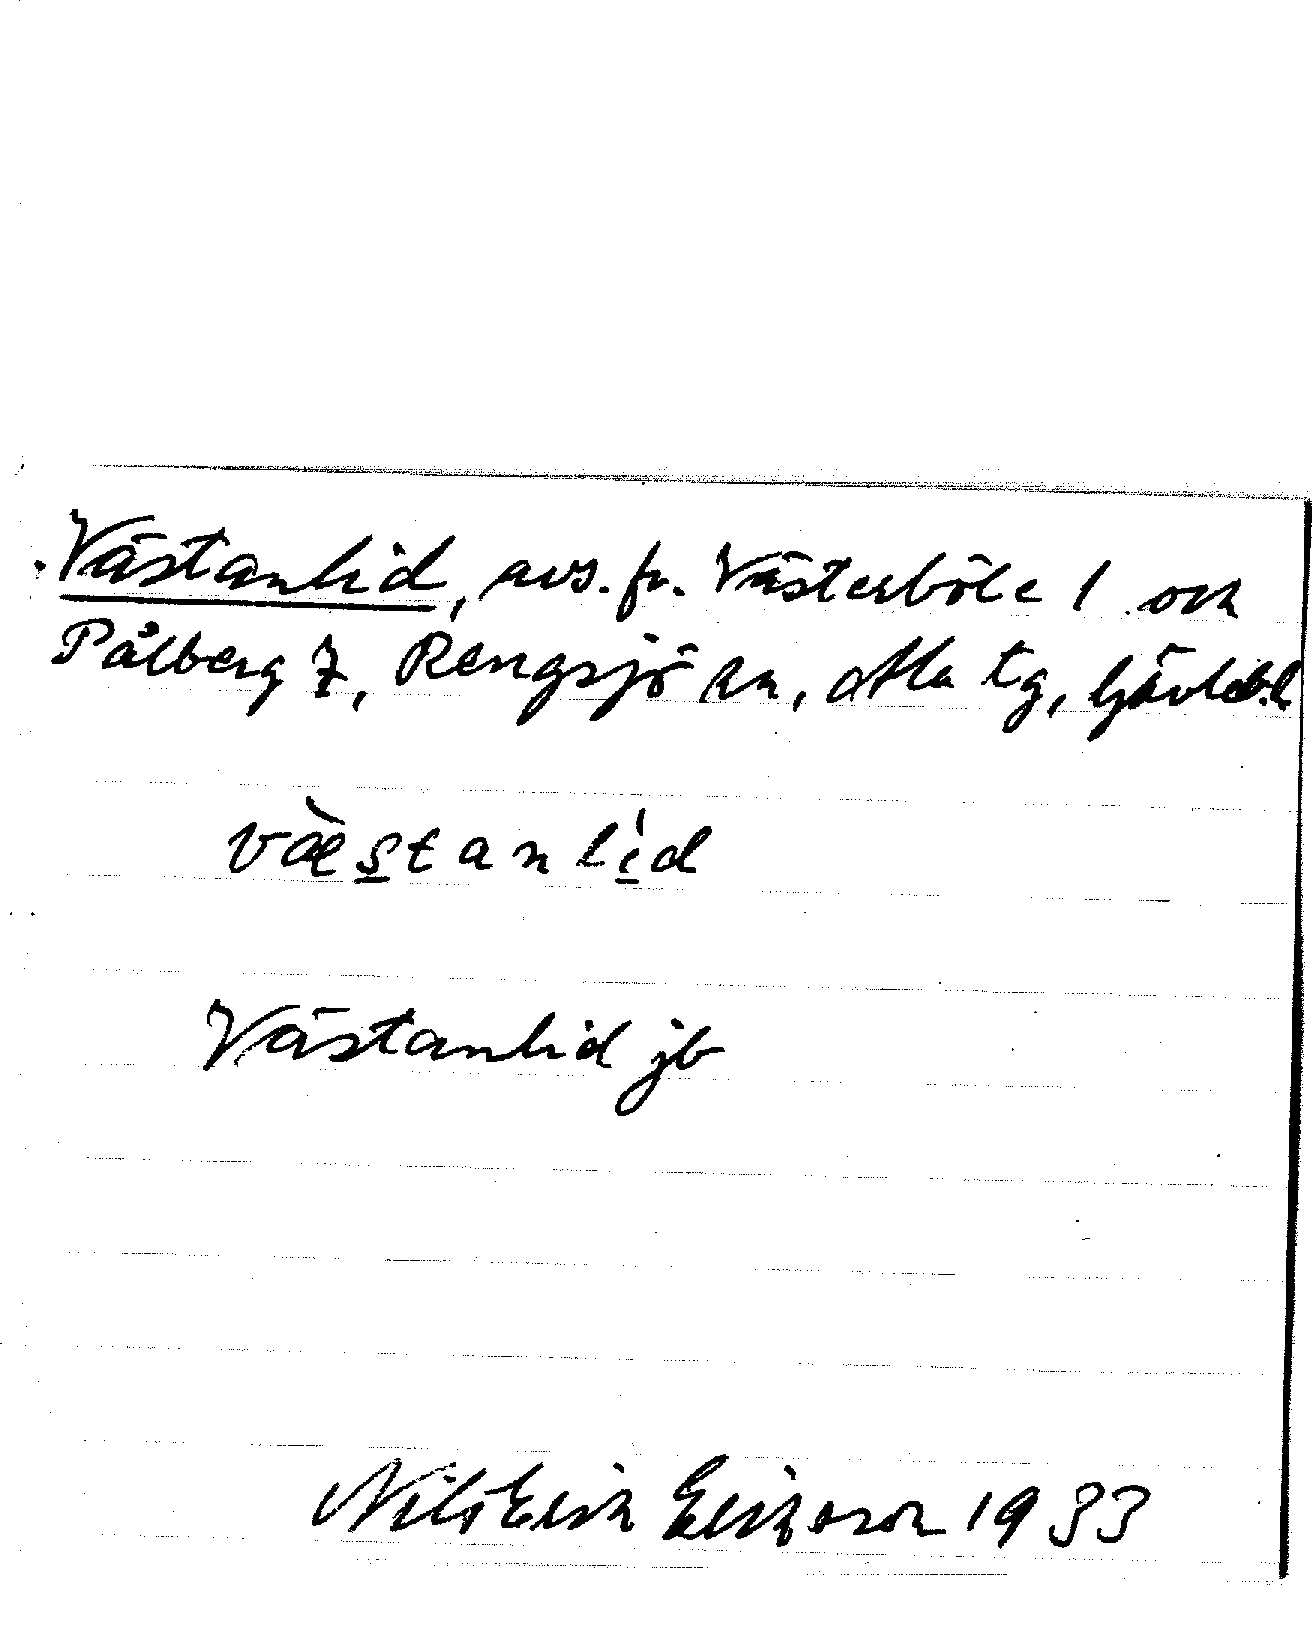 Västanlid, avs. fr. Västerböle 1 och
Pålberg 7, Rengsjö sn, Alla tg, Gävleb. l
væ̀stanlı̍d
Västanlid jb
Nils Erik Eriksson 1933